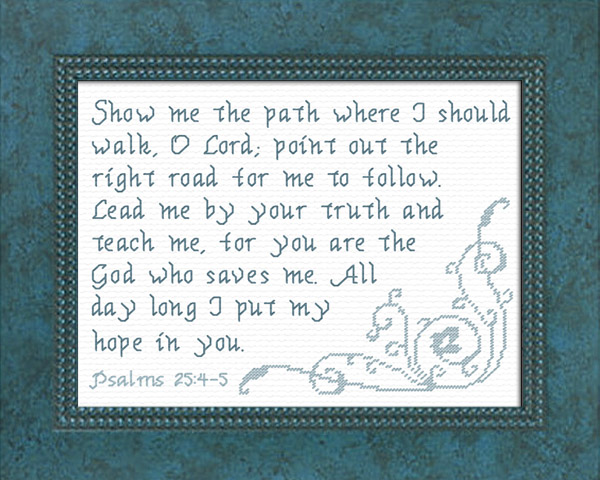 Show me the path where I should
walk, O Lord; point out the
right road for me to follow.
Lead me by your truth and
teach me, for you are the
God who saves me. All
day long I put my
hope in you.
Psalms 25:4-5